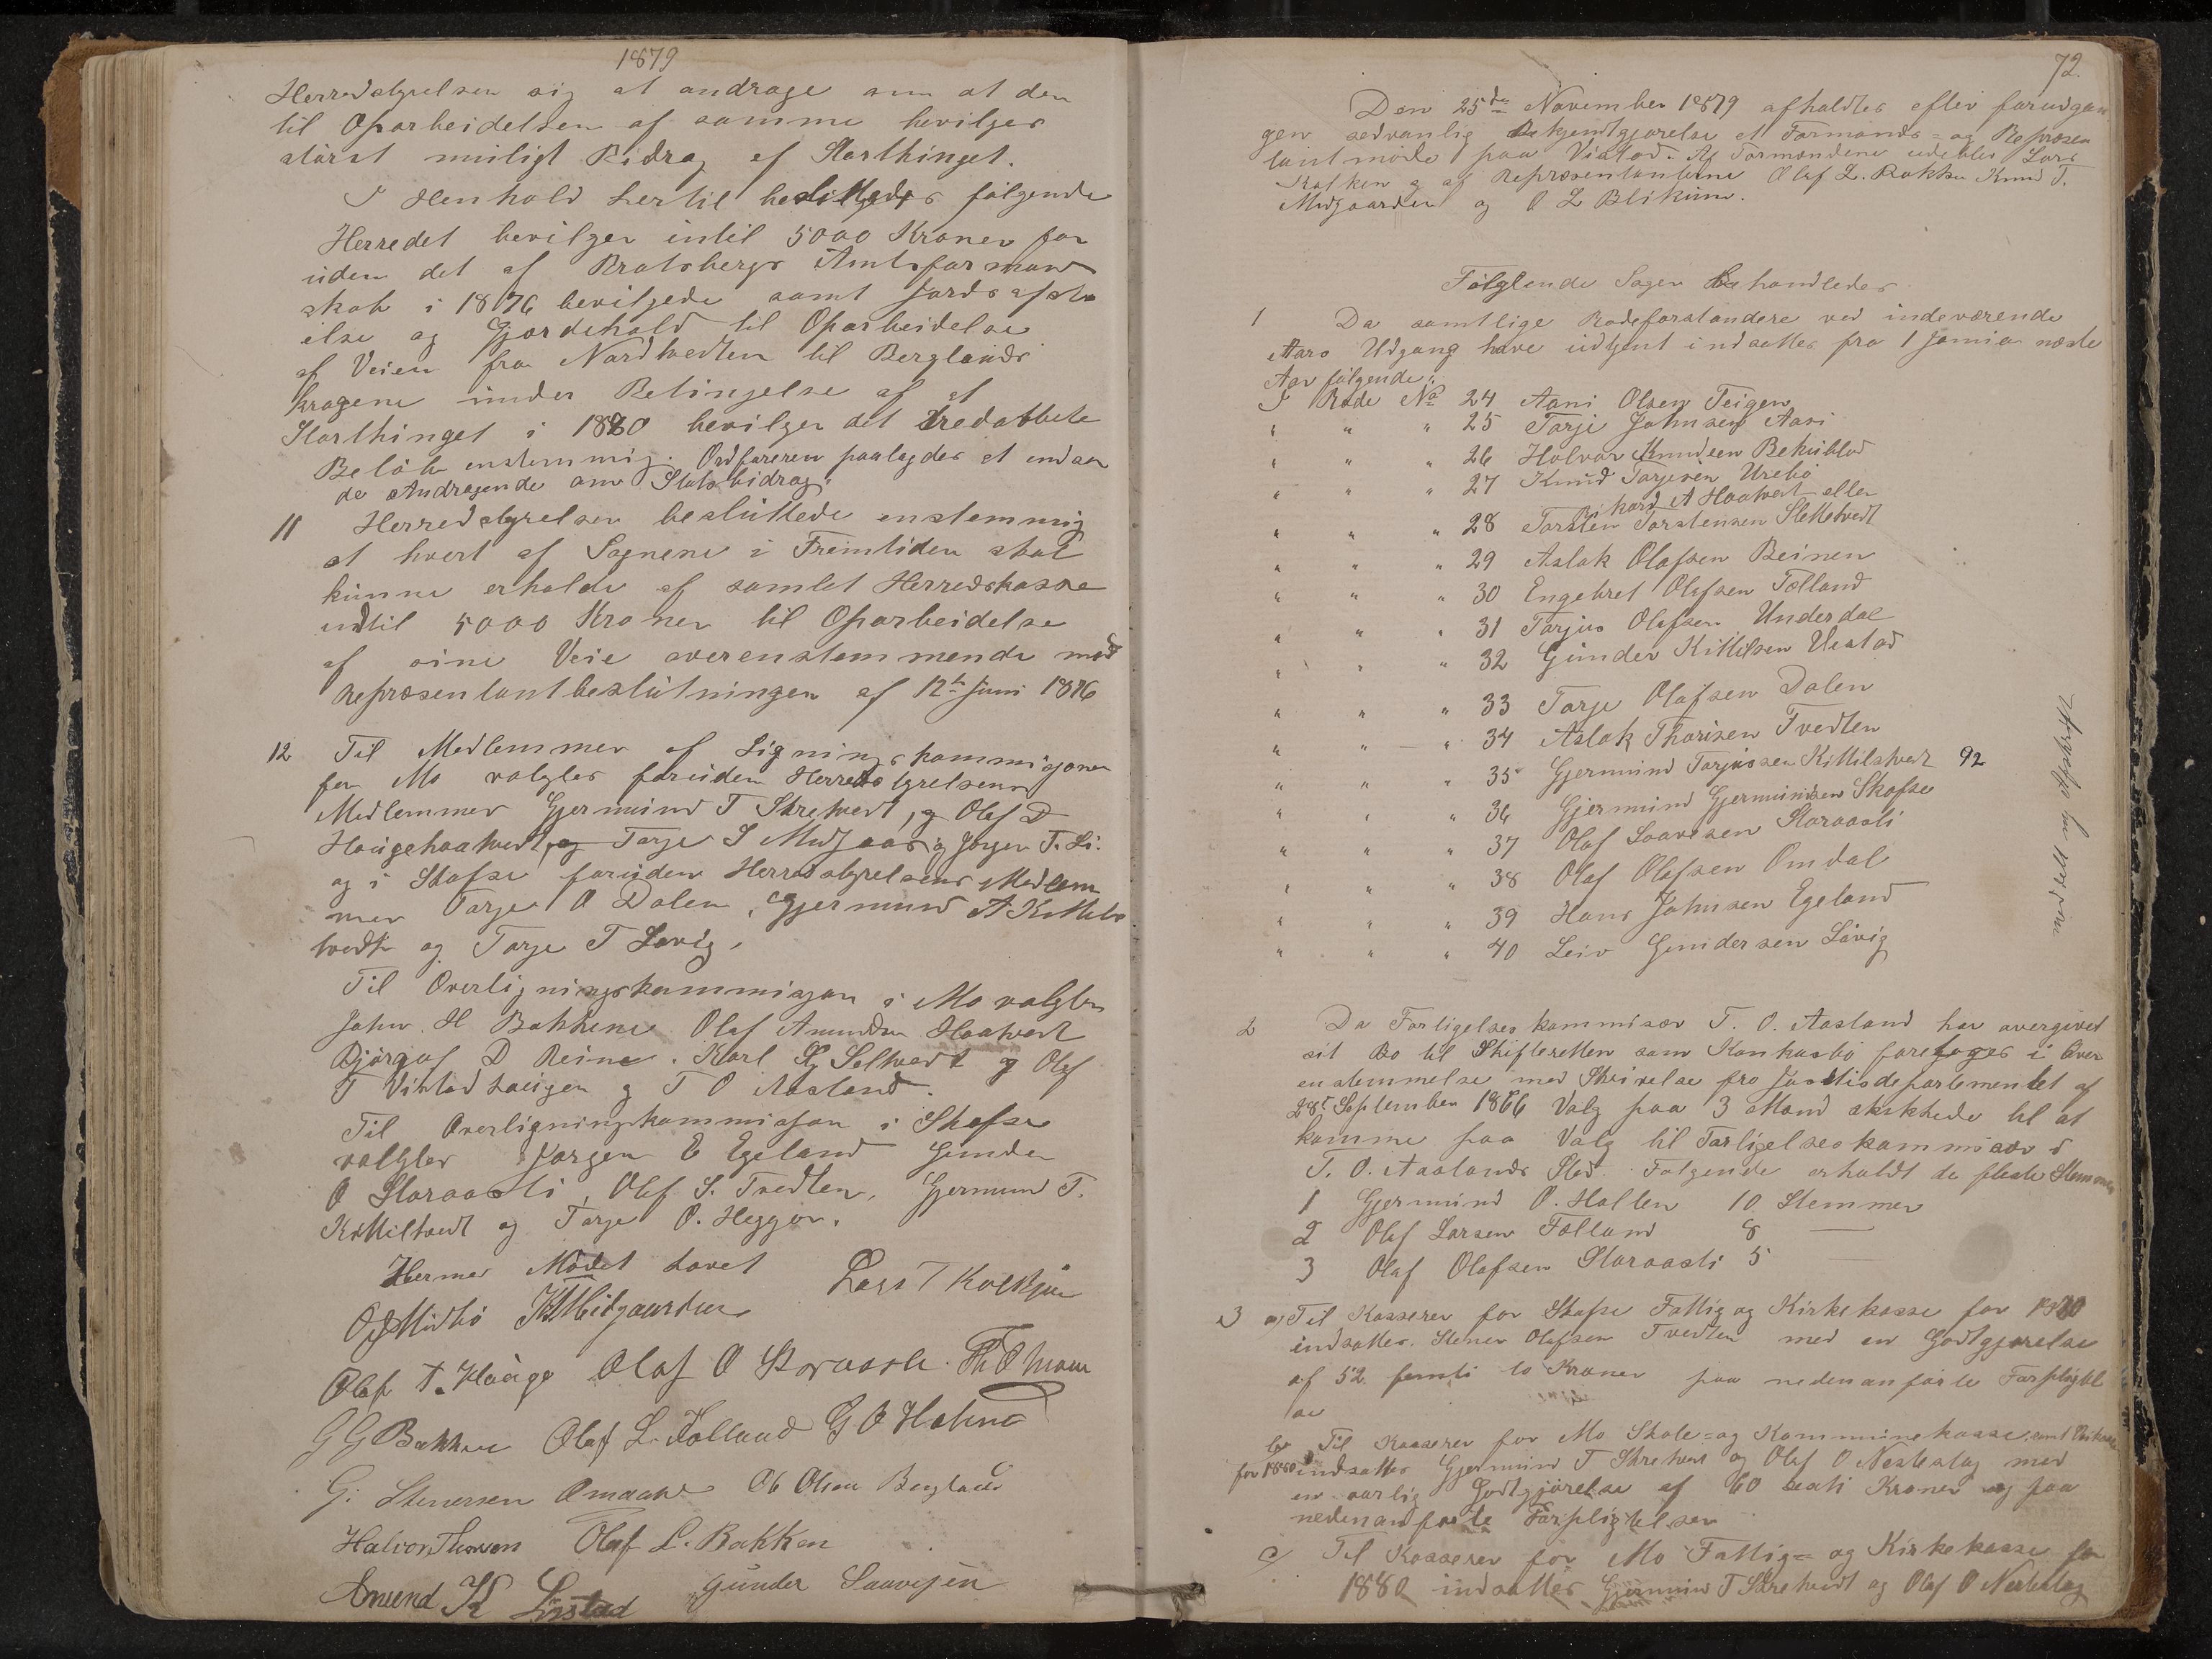 1879
Herredstyrelsen sig at andrage om at der
til Oparbeidelsen af samme bevilges
størst muligt Bidrag af Storthinget.
I Henhold hertil besluttedes følgende
Herredet bevilger intil 5000 Kroner for
uden det af Bratsbergs Amtsformand
skab i 1876 bevilgede samt Jords afstaa
else og Gjerdehold til Oparbeidelse
af Veien fra Nordtvedten til Berglands
kragene under Betingelse af at
Storthinget i 1880 bevilger det
Beløb enstemmig. Ordføreren paalagdes at indsen
de Andragende om Statsbidrag.
11 Herredstyrelsen besluttede enstemmig
at hvert af Sognene i Fremtiden skal
kunne erholde af samlet Herredskasse
indtil 5000 Kroner til Oparbeidelse
af sine Veie overenstemmende med
Repræsentantbeslutningen af 12te Juni 1876
12 Til Medlemmer af Ligningskommisjonen
for Mo valgtes foruden Herredstyrelsens
Medlemmer Gjermund T Skretvedt, og Olaf D
Haugehaatvedt, og Tarje S Midgaar og Jørgen T. Li.
og i Skafse foruden Herredstyrelsens Medlem
mer Tarje O Dalen, Gjermund A Kittils
tvedt og Tarje T Løvig.
Til Overligningskommisjon i Mo valgtes
John H Bakkene Olaf Amundsen Haatvedt
Bjørguf D Beine. Karl Seltvedt og Olaf
T Vistadhaugen og T O Aasland.
Til Overligningskommisjon i Skafse
valgtes Jørgen E Egeland Gunder
O Storaasli, Olaf S. Tvedten, Gjermund T.
Kittiltvedt og Tarje O. Heggtv.
Hermed Mødet hævet Lars T Kolkjøn
O Midbø K Midgaarden
Olaf T. Hauge Olaf O Storaasli. Th O Moen
G G Bakken Olaf L. Følland G O Holma
G. Stenersen Omdahl Ol Olsen Bergland
Halvor Thorsen Olaf L. Bakken
Amund K Listad Gunder Saavesen
72.
Den 25de November 1879 afholdtes efter forudgan
gen sedvanlig Bekjendtgjørelse et Formands= og Repræsen
tantmøde paa Vistad. Af Formændene udeblev Lars
Kolken og af Repræsentanterne Olaf L. Bakken Knud T.
Midgaarden og O L Blikum.
Følglende Sager behandledes
1 Da samtlige Rodeforstandere ved indeværende
Aars Udgang have udtjent indsættes fra 1 Januar næste
Aar følgende:
I Rode No 24 Aani Olsen Teigen
" " " 25 Tarje Johnsen Aasi
" " " 26 Halvor Knudsen Bekublod
" " " 27 Knud Tarjeisen Urebø
hard A Haatvedt eller
" " " 28 Torsten Torstensen Slettetvedt
" " " 29 Aslak Olafsen Beinen
" " " 30 Engebret Olafsen Følland
" " " 31 Tarjus Olafsen Underdal
" " " 32 Gunder Kittilsen Vestad
" " " 33 Tarje Olafsen Dalen
" " " 34 Aslak Thorisen Tvedten
" " " 35 Gjermund Tarjussen Kittilstvedt 92
" " " 36 Gjermund Gjermundsen Skafse
" " " 37 Olaf Saavesen Storaasli
" " " 38 Olaf Olafsen Omdal
" " " 39 Hans Johnsen Egeland
" " " 40 Leiv Gundersen Løvig
meddelt og Afskrift
2 Da Forligelseskommisær T. O. Aasland har overgivet
sit Bo til Skifteretten som Konkursbo foretages i Over
enstemmelse med Skrivelse fra Justisdepartementet af
28de September 1866 Valg paa 3 Mænd skikkede til at
komme paa Valg til Forligelseskommisær i
T. O. Aaslands Sted. Følgende erholdt de fleste Stemmer
1 Gjermund O. Hallen 10 Stemmer
2 Olaf Larsen Følland 8 —
3 Olaf Olafsen Storaasli 5 —
3 a) Til Kasserer for Skafse Fattig og Kirkekasse for 1880
indsættes Stener Olafsen Tvedten med en Godtgjørelse
af 52 femti to Kroner paa nedenanførte Forpligtel
ser
b Til Kasserer for Mo Skole= og Kommunekasse samt Veikasse
for 1880 indsættes Gjermund T Skretvedt og Olaf O Nesteslag med
en aarlig Godtgjørelse af 60 sexti Kroner og paa
nedenanførte Forpligtelser
c/ Til Kasserer for Mo Fattig= og Kirkekasse for
1880 indsættes Gjermund T Skretvedt og Olaf O Nesteslag